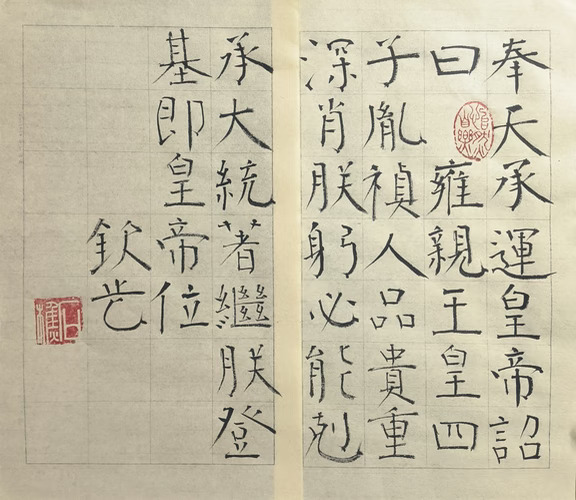 奉天承運皇帝詔
曰雍親王皇四
子胤禎人品貴重
深肖朕躬必能剋
承大統著繼朕登
基即皇帝位
欽此